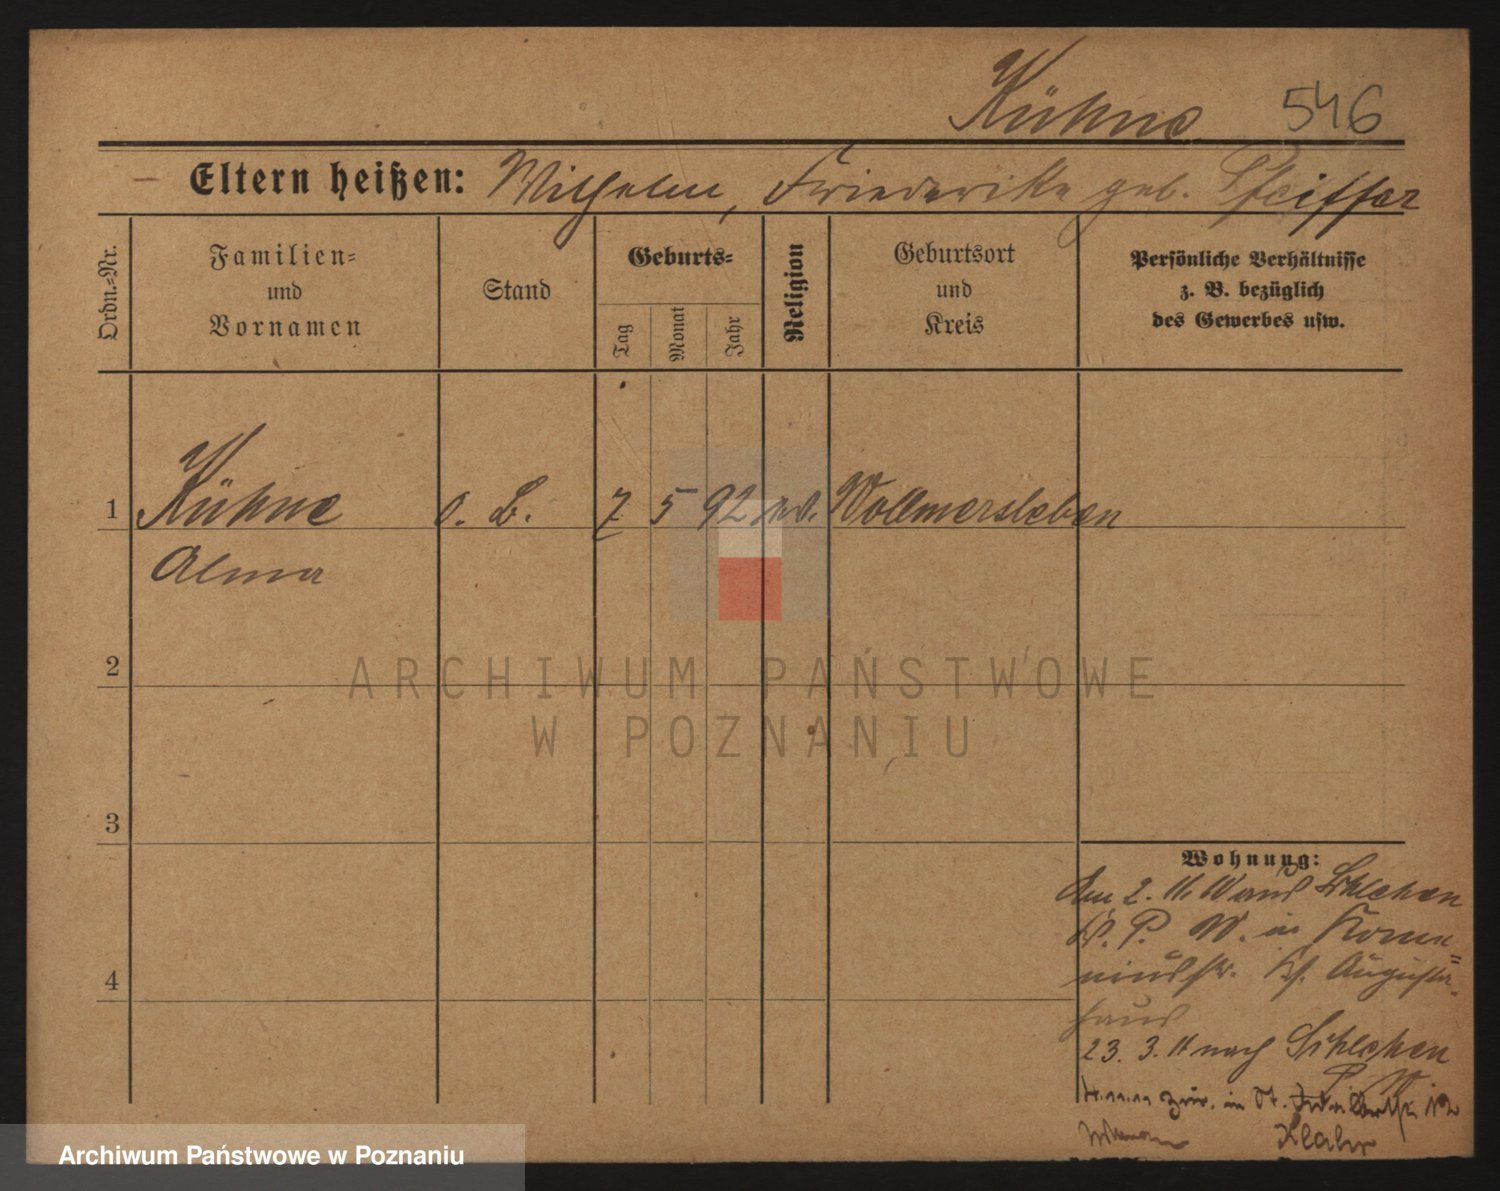 Kühne 546
Eltern heißen: Wilhelm, Friederike geb. Pfeiffer
Ordn.-Nr.
Familien-
und
Vornamen
Stand
Geburts-
Tag
Monat
Jahr
Religion
Geburtsort
und
Kreis
Persönliche Verhältnisse
z. B. bezüglich
des Gewerbes usw.
1 Kühne o. B. 7 5 92 ev. Wollmersleben
Alma
2
3
4
Wohnung:
Am 2. 11. 10 aus Schlehen
Kr. P. W. in
Augusta-
haus
23. 3. 11 nach Schlehen
P W
4.11.11 zur. in St. 12
ARCHIWUM PAŃSTWOWE
W POZNANIU
Archiwum Państwowe w Poznaniu